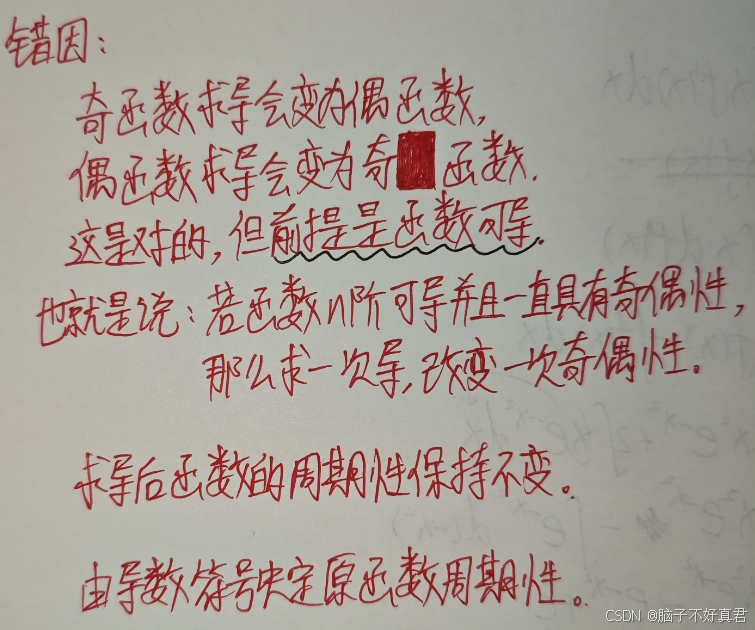 错因：
奇函数求导会变为偶函数，
偶函数求导会变为奇函数.
这是对的，但前提是函数可导.
也就是说：若函数n阶可导并且一直具有奇偶性，
那么求一次导，改变一次奇偶性。
求导后函数的周期性保持不变。
由导数符号决定原函数周期性。
CSDN @脑子不好真君